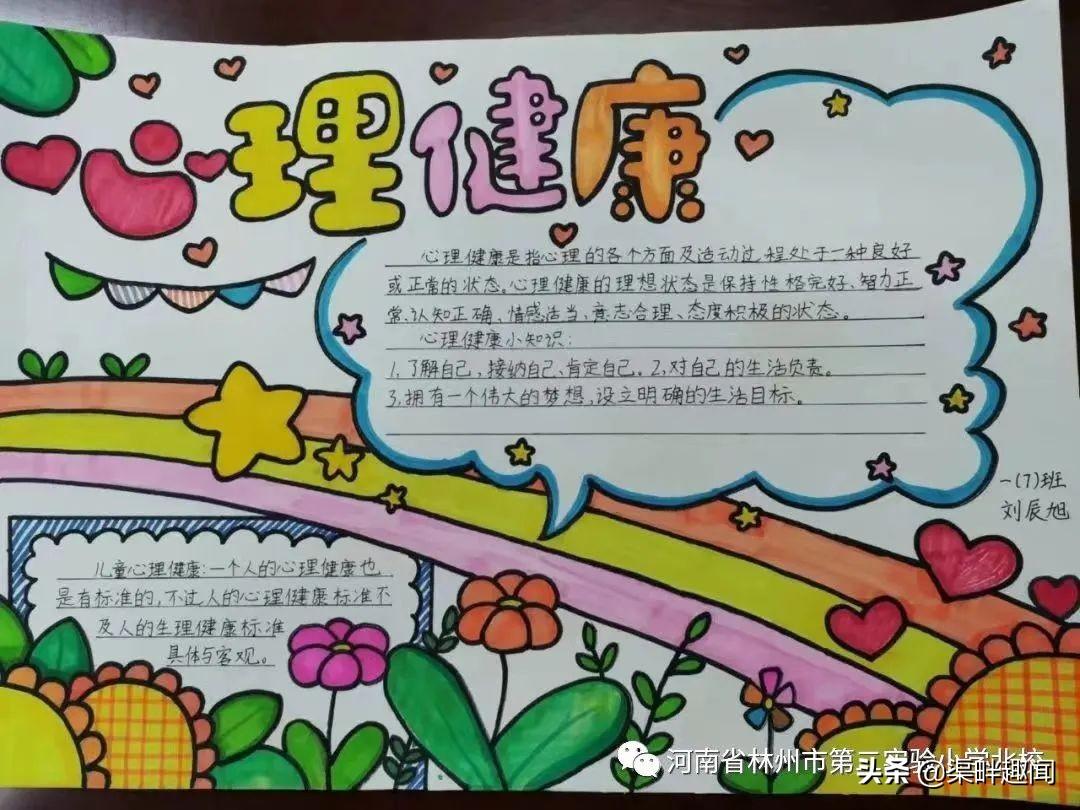 心理健康
心理健康是指心理的各个方面及活动过程处于一种良好
或正常的状态。心理健康的理想状态是保持性格完好、智力正
常、认知正确、情感适当、意志合理、态度积极的状态。
心理健康小知识:
1.了解自己,接纳自己、肯定自己。2.对自己的生活负责。
3.拥有一个伟大的梦想,设立明确的生活目标。
一(7)班
刘辰旭
儿童心理健康:一个人的心理健康也
是有标准的,不过人的心理健康标准不
及人的生理健康标准
具体与客观。
河南省林州市第二实验小学北校
头条@渠畔趣闻